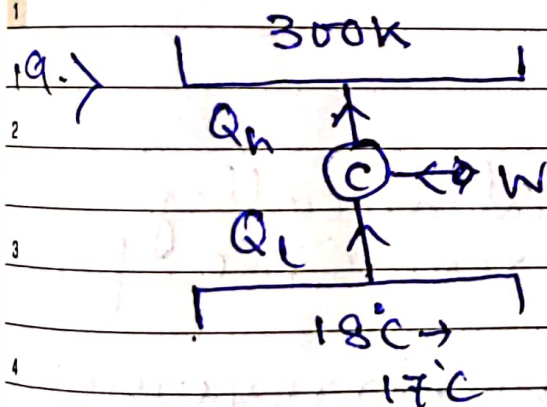 1
300K
19.>
2
Qh
C W
3
QL
18°C →
4
17°C